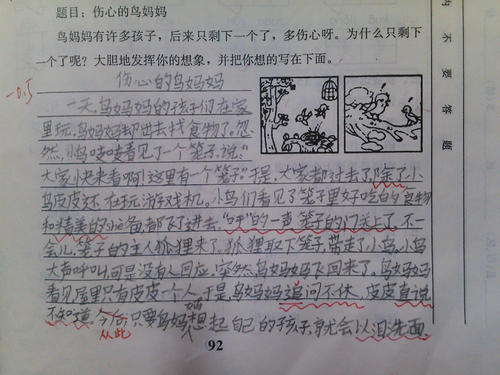 题目：伤心的鸟妈妈
鸟妈妈有许多孩子，后来只剩下一个了，多伤心呀。为什么只剩下
一个了呢？大胆地发挥你的想象，并把你想的写在下面。
伤心的鸟妈妈
-0.5
一天,鸟妈妈的孩子们在家
里玩,鸟妈妈却出去找食物了。忽
然,小鸟吱吱看见了一个笼子,说:“
大家快来看啊!这里有个笼子。”于是,大家都过去了,除了小
鸟皮皮还在玩游戏机。小鸟们看见了笼子里好吃的食物
和精美的设备,都飞了进去,“呯”的一声,笼子的门关上了,不一
会儿,笼子的主人狐狸来了。狐狸取下笼子,带走了小鸟,小鸟
大声呼叫,可是没有人回应。突然,鸟妈妈飞回来了。鸟妈妈
看见屋里只有皮皮一个人,于是,鸟妈妈追问不休,皮皮直说
不知道。今后,只要鸟妈妈想起自己的孩子,就会以泪洗面。
从此
92
内不要答题